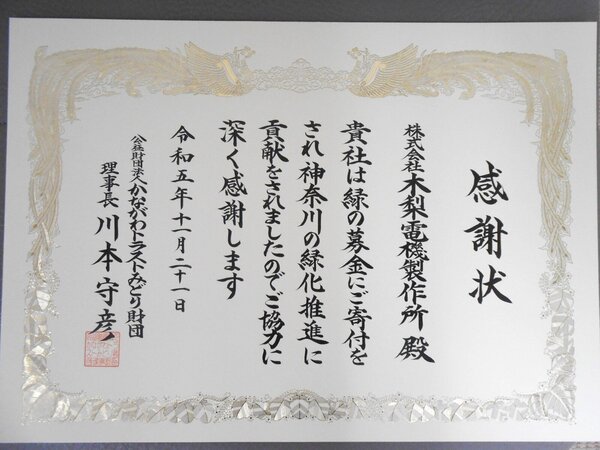 感謝状
株式会社 木梨電機製作所 殿
貴社は緑の募金にご寄付を
され神奈川の緑化推進に
貢献をされましたのでご協力に
深く感謝します
令和五年十一月二十一日
公益財団法人かながわトラストみどり財団
理事長 川本守彦